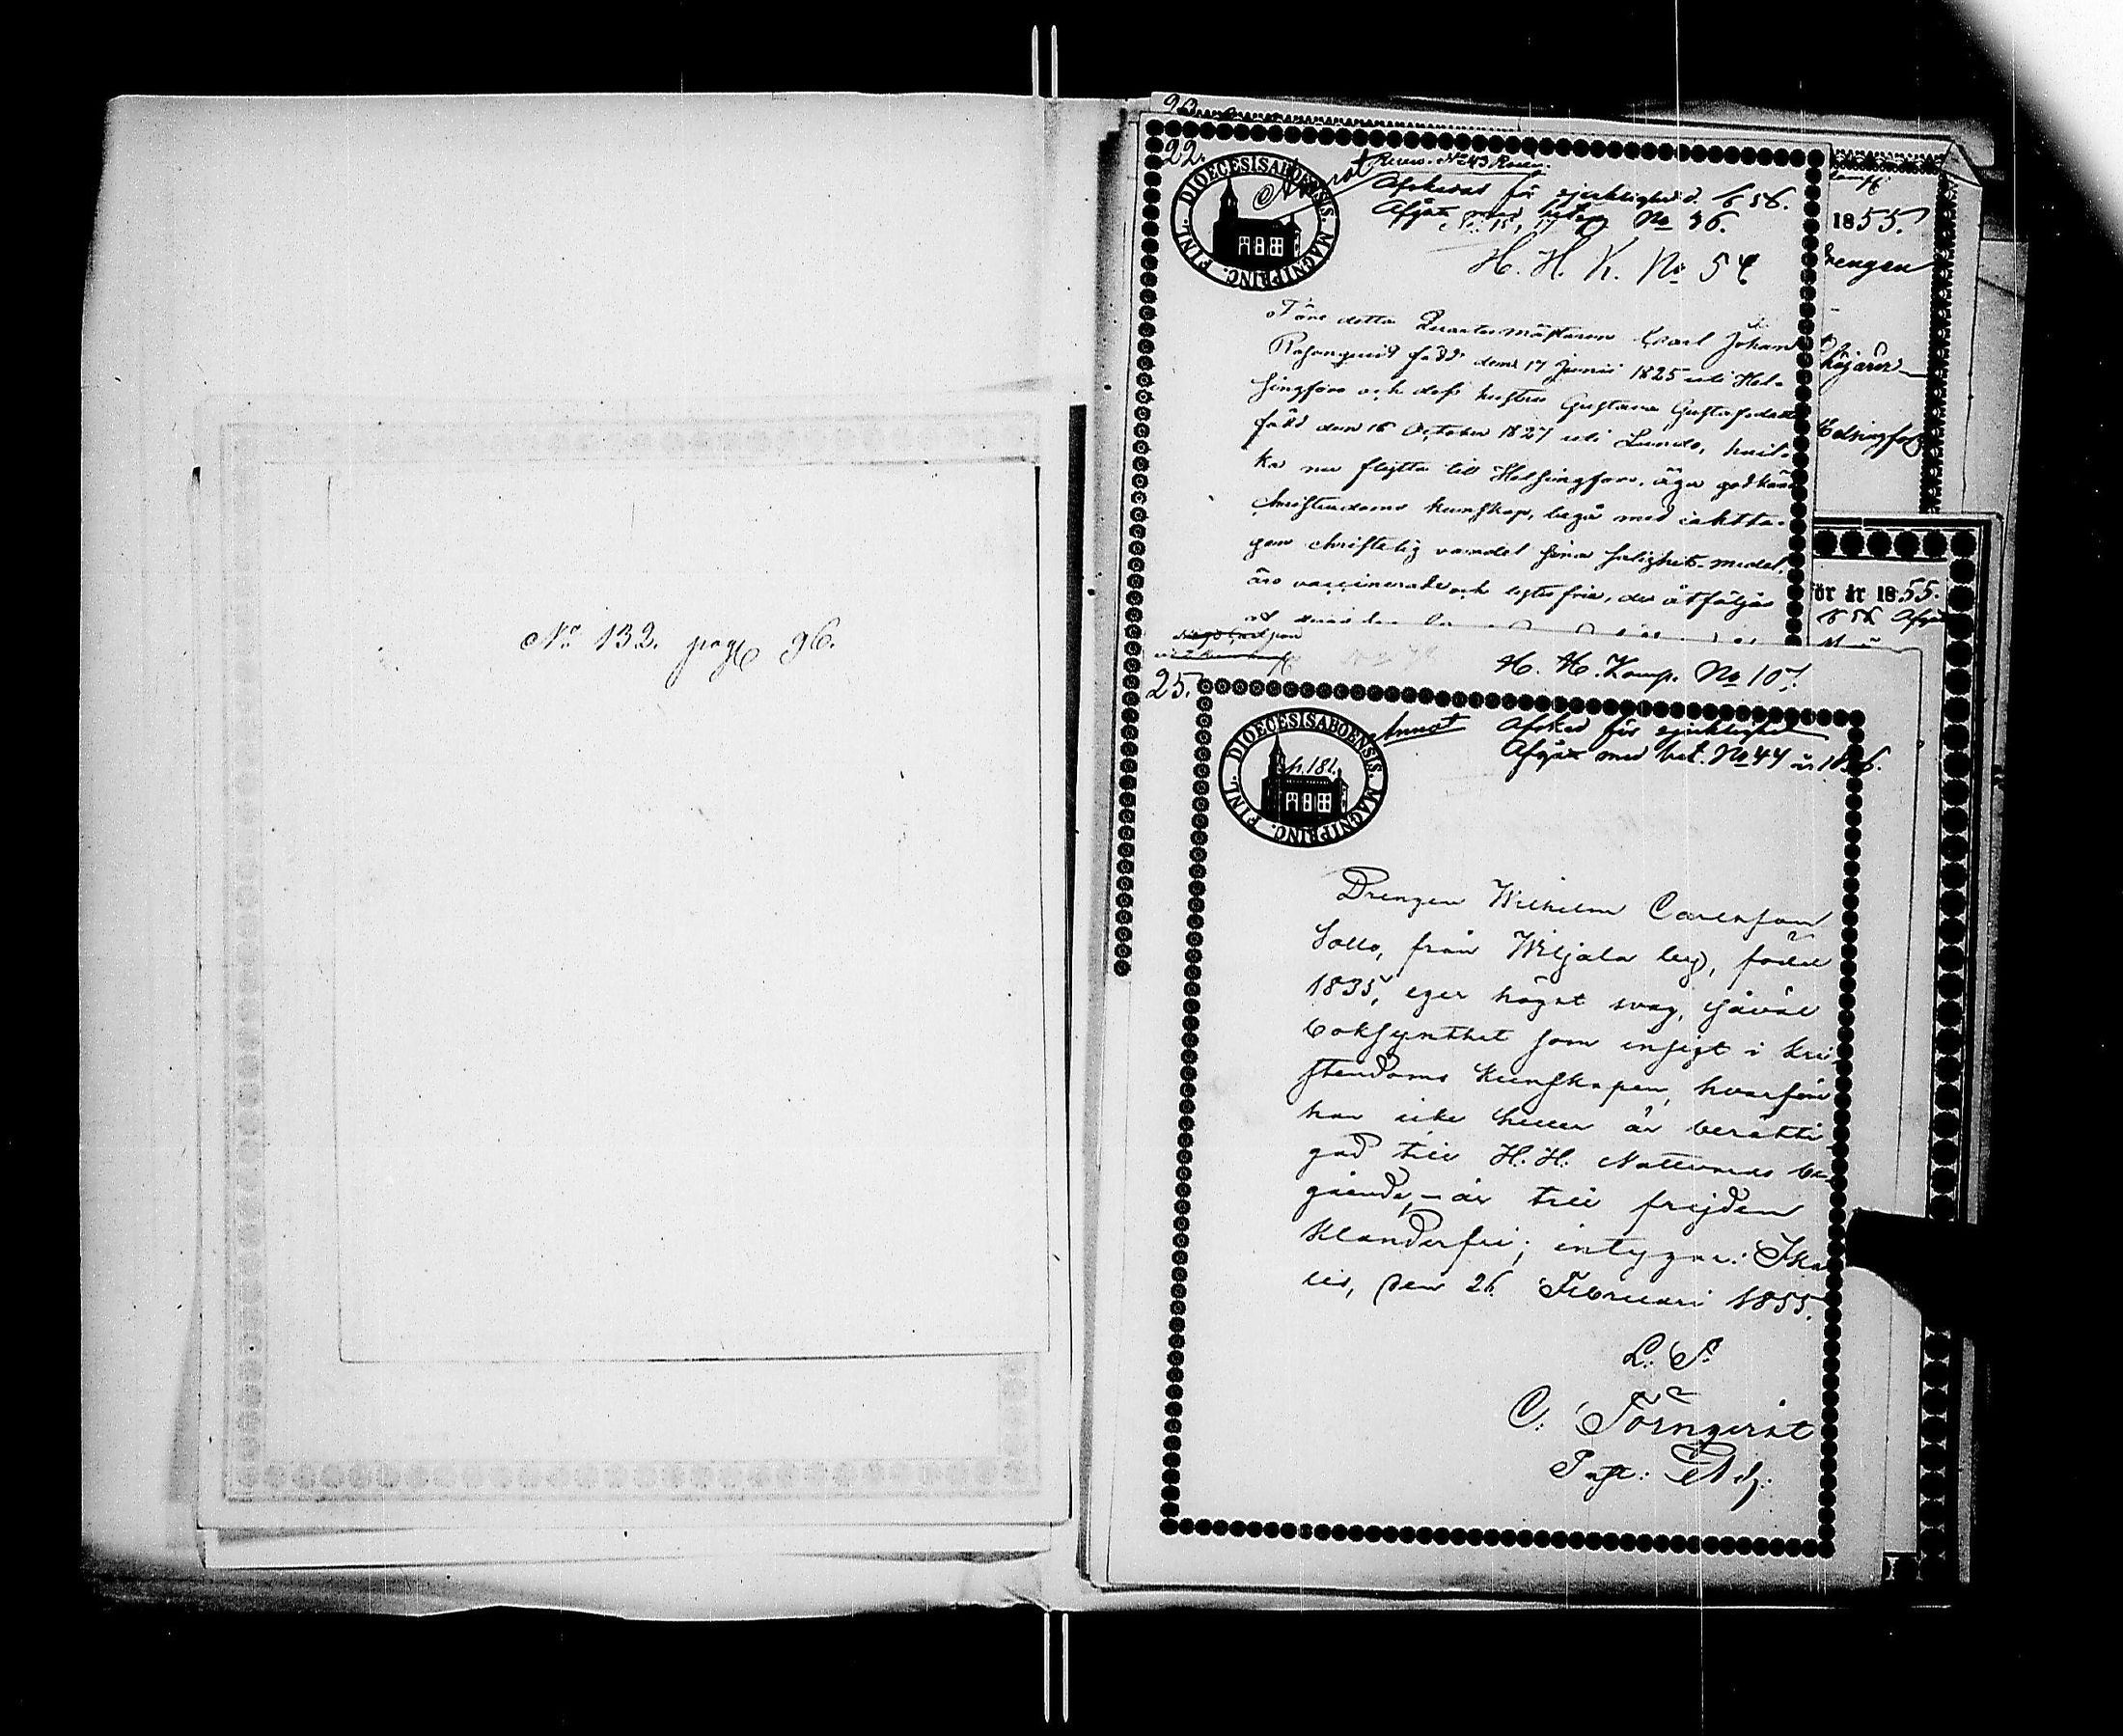 No 132. pag 96.
22.
DIOECESIS ABOENSIS. MAGNI PRINC. FINL.
Annot
No 49
Afskedad för sjuklighet d. 1856.
Afgått med betyg No 36.
H. H. K. No 54
Före detta Quartermästaren Carl Johan
Rosenquist född den 17 Junii 1825 uti Hel-
singfors och dess hustru Gustava Gustafsdotter
född den 16 October 1827 uti Lundo, hvil-
ka nu flytta till Helsingfors, äga godkänd
christendoms kunskap, begå med iaktta-
gen christelig vandel sina salighets-medel,
äro vaccinerade och egtefria, de åtföljas
1855.
Drengen
Helsingfors
för år 1855.
1856 Afgått
H. H. Komp. No 107.
25.
DIOECESIS ABOENSIS. MAGNI PRINC. FINL.
p. 181.
Annot
Afsked för sjuklighet
Afgått med bet. No 44 år 1856.
Drengen Wilhelm Carlsson
Sallo, från Wiljala by, född
1835, eger högst svag, såväl
boksynthet som insigt i Kri-
stendoms kunskapen, hvarföre
han icke heller är berätti-
gad till H. H. Nattvards be-
gående, – är till frejden
klanderfri; intygar: Ika-
lis, den 26 Februari 1855.
L. S.
C. Törnqvist
Past: Adj: